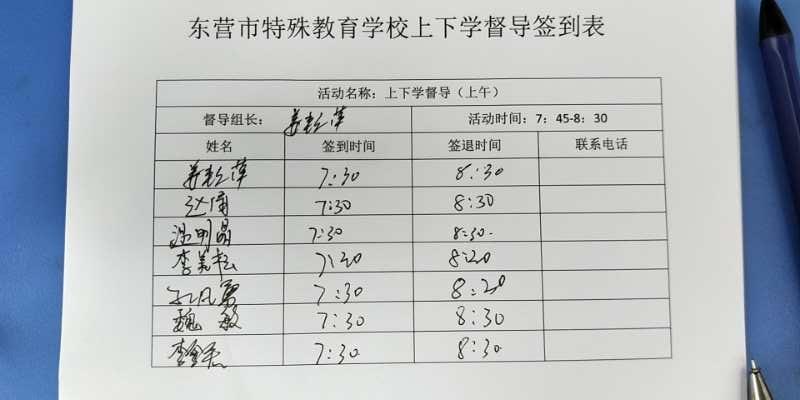 东营市特殊教育学校上下学督导签到表
活动名称：上下学督导（上午）
督导组长： 活动时间：7：45-8：30
姓名 签到时间 签退时间 联系电话
7:30 8:30
赵倩 7:30 8:30
温明晶 7:30 8:30.
李美松 7:20 8:20
7:30 8:20
魏敏 7:30 8:30
7:30 8:30